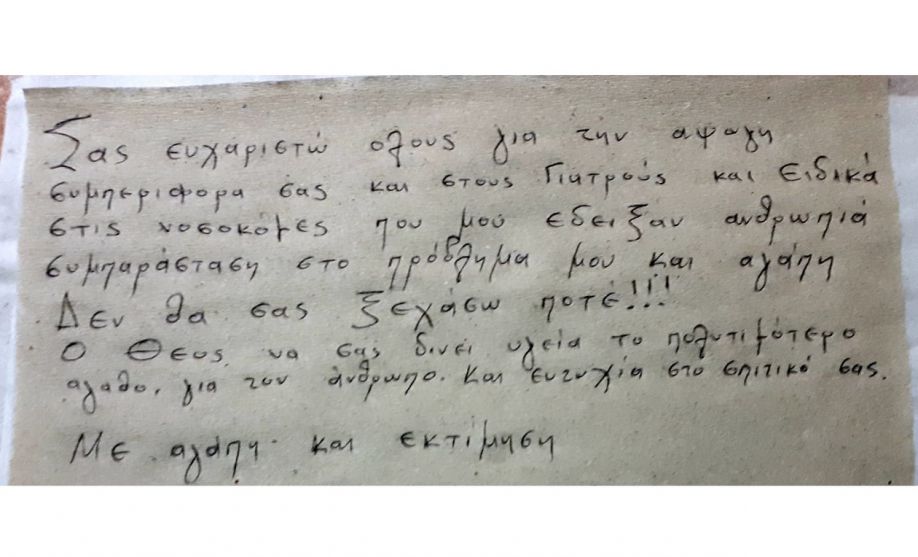 Σας ευχαριστώ ολους για την αψαγη
συμπεριφορα σας και στους Γιατρούς και Ειδικά
στις νοσοκόμες που μού εδειξαν ανθρωπιά
συμπαράσταση στο πρόβλημα μου και αγάπη
Δεν θα σας ξεχάσω ποτέ!!!
Ο Θεος να σας δινει υγεία το πολυτιμότερο
αγαθο, για τον άνθρωπο. Και ευτυχία στο σπιτικό σας.
Με αγάπη και εκτίμηση